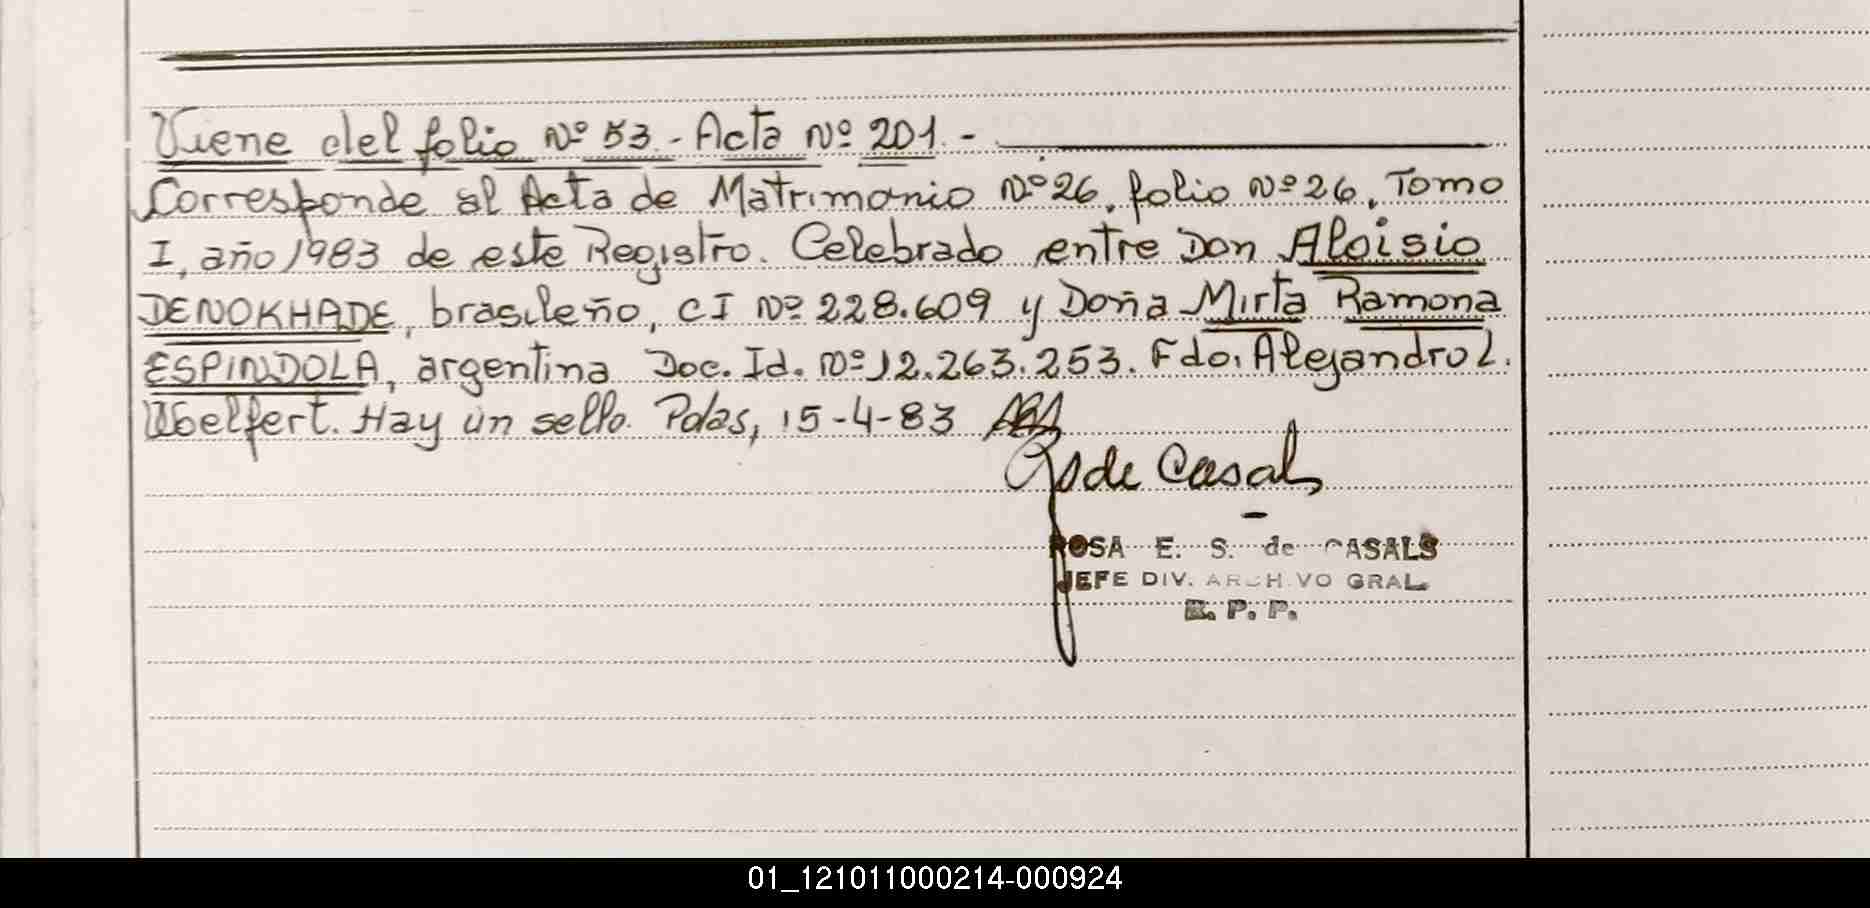 Viene del folio Nº 53 - Acta Nº 201. -
Corresponde al Acta de Matrimonio Nº 26, folio Nº 26, Tomo
I, año 1983 de este Registro. Celebrado entre Don Aloisio
DENOKHADE, brasileño, CI Nº 228.609 y Doña Mirta Ramona
ESPINDOLA, argentina Doc. Id. Nº 12.263.253. Fdo. Alejandro L.
Welfert. Hay un sello. Pdas, 15-4-83
de Casals
ROSA E. S. de CASALS
JEFE DIV. ARCHIVO GRAL.
R. P. P.
01_121011000214-000924